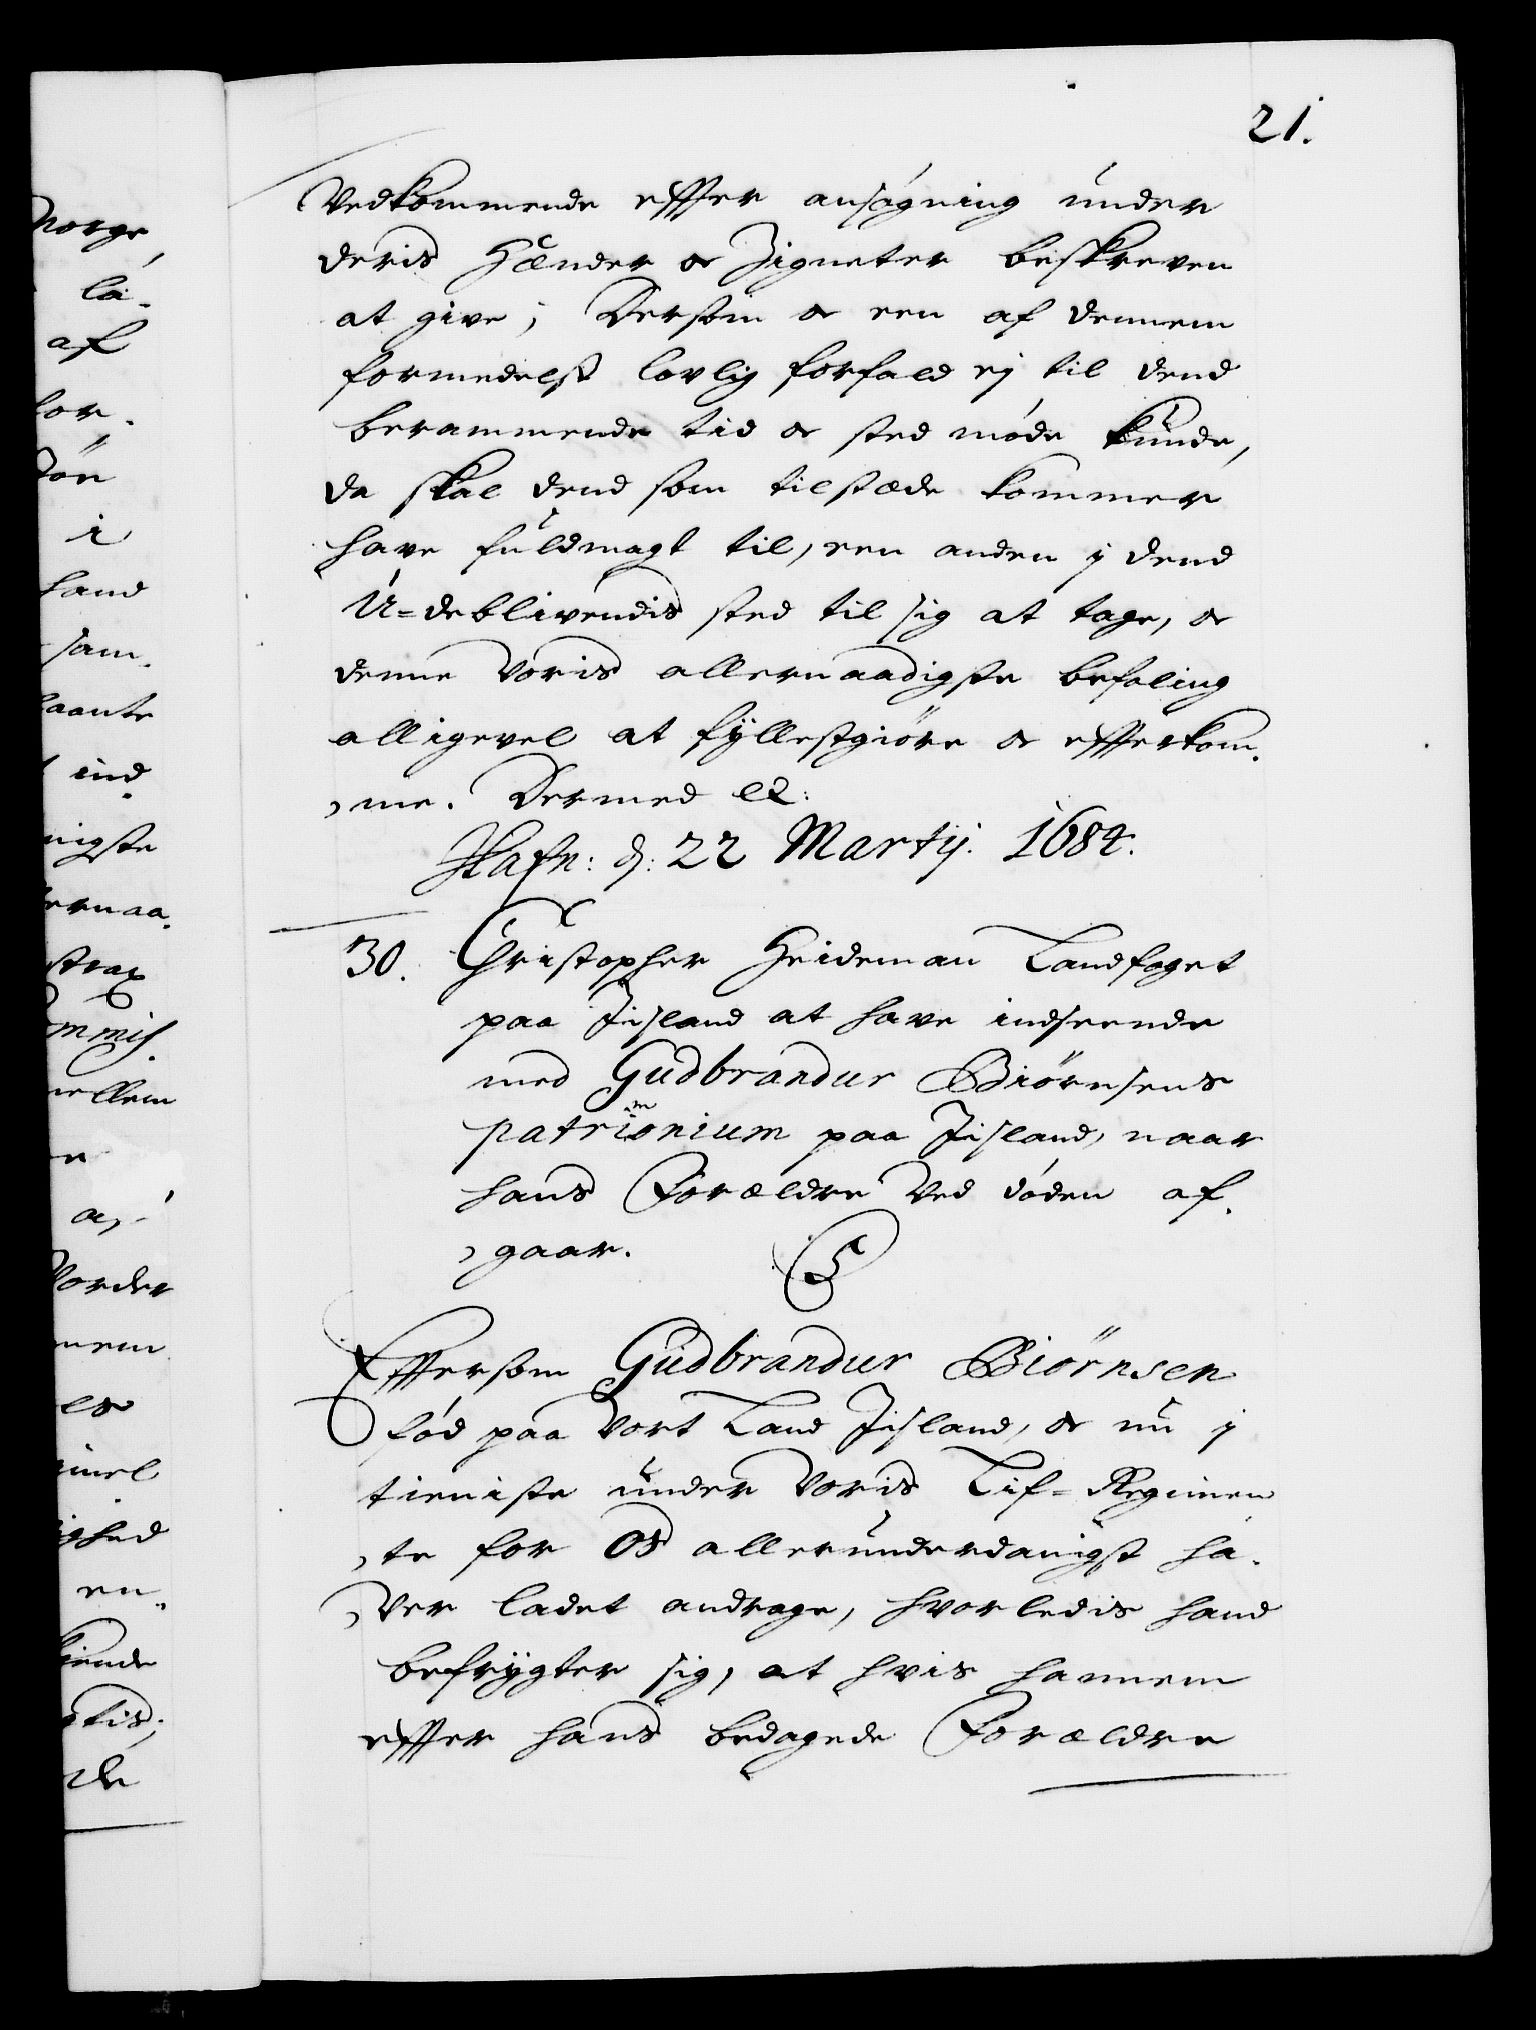 21.
Vedkommende effter ansøgning under
deris Hænder oc Zigneter beskreven
at give; Dersom oc een af dennem
formedelst lovlig forfald ej til dend
berammende tid oc sted møde kunde,
da skal dend som tilstæde kommer
have fuldmagt til, een anden j dend
U=deblivendis sted til sig at tage, oc
denne Voris allernaadigste befaling
alligevel at fyllestgiöre oc effterkom-
me. Dermed etc:
Hafn: d: 22 Martij. 1684.
30. Christopher Heideman Landfoget
paa Jisland at have indseende
med Gudbrandur Biörnsens
patrimonium paa Jisland, naar
hans Forældre Ved døden af-
gaar.
C5
Effersom Gudbrandur Biörnsen
fød paa Vort Land Jisland, oc nu j
tieniste under Voris Lif=Regimen
te for Os allerunderdanigst ha-
Ver ladet andrage, hvorledis hand
befrygter sig, at hvis hannem
effter hans bedagede Forældre
Norge,
la-
af
for-
i
hand
sam-
laante
ind-
nigste
ernaa-
strax
ommis-
mellem
Vorder
nem
ighed
en-
tis;